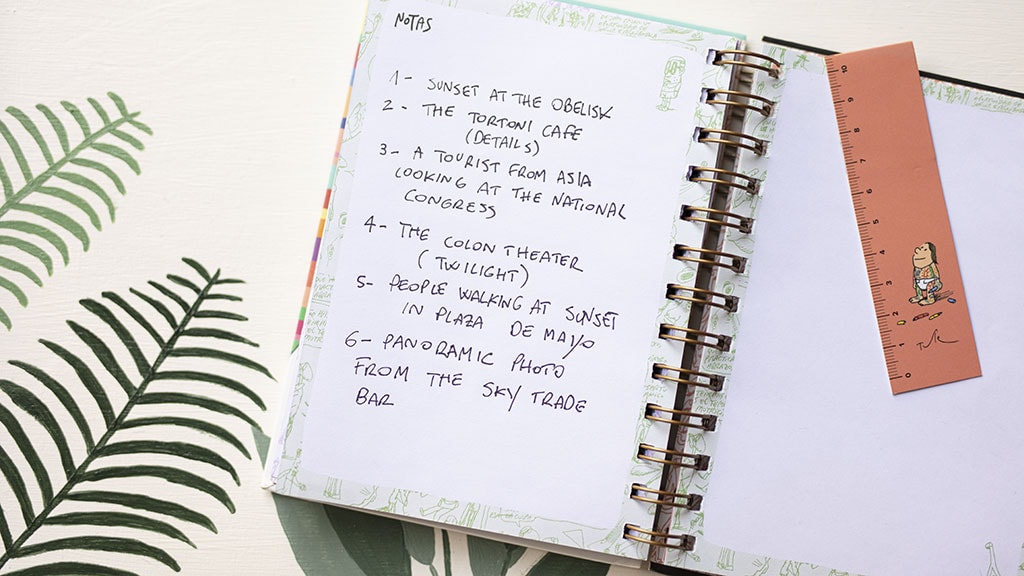 NOTAS
1- SUNSET AT THE OBELISK
2- THE TORTONI CAFE
(DETAILS)
3- A TOURIST FROM ASIA
LOOKING AT THE NATIONAL
CONGRESS
4- THE COLON THEATER
(TWILIGHT)
5- PEOPLE WALKING AT SUNSET
IN PLAZA DE MAYO
6- PANORAMIC PHOTO
FROM THE SKY TRADE
BAR
10
9
8
7
6
5
4
3
2
1
0